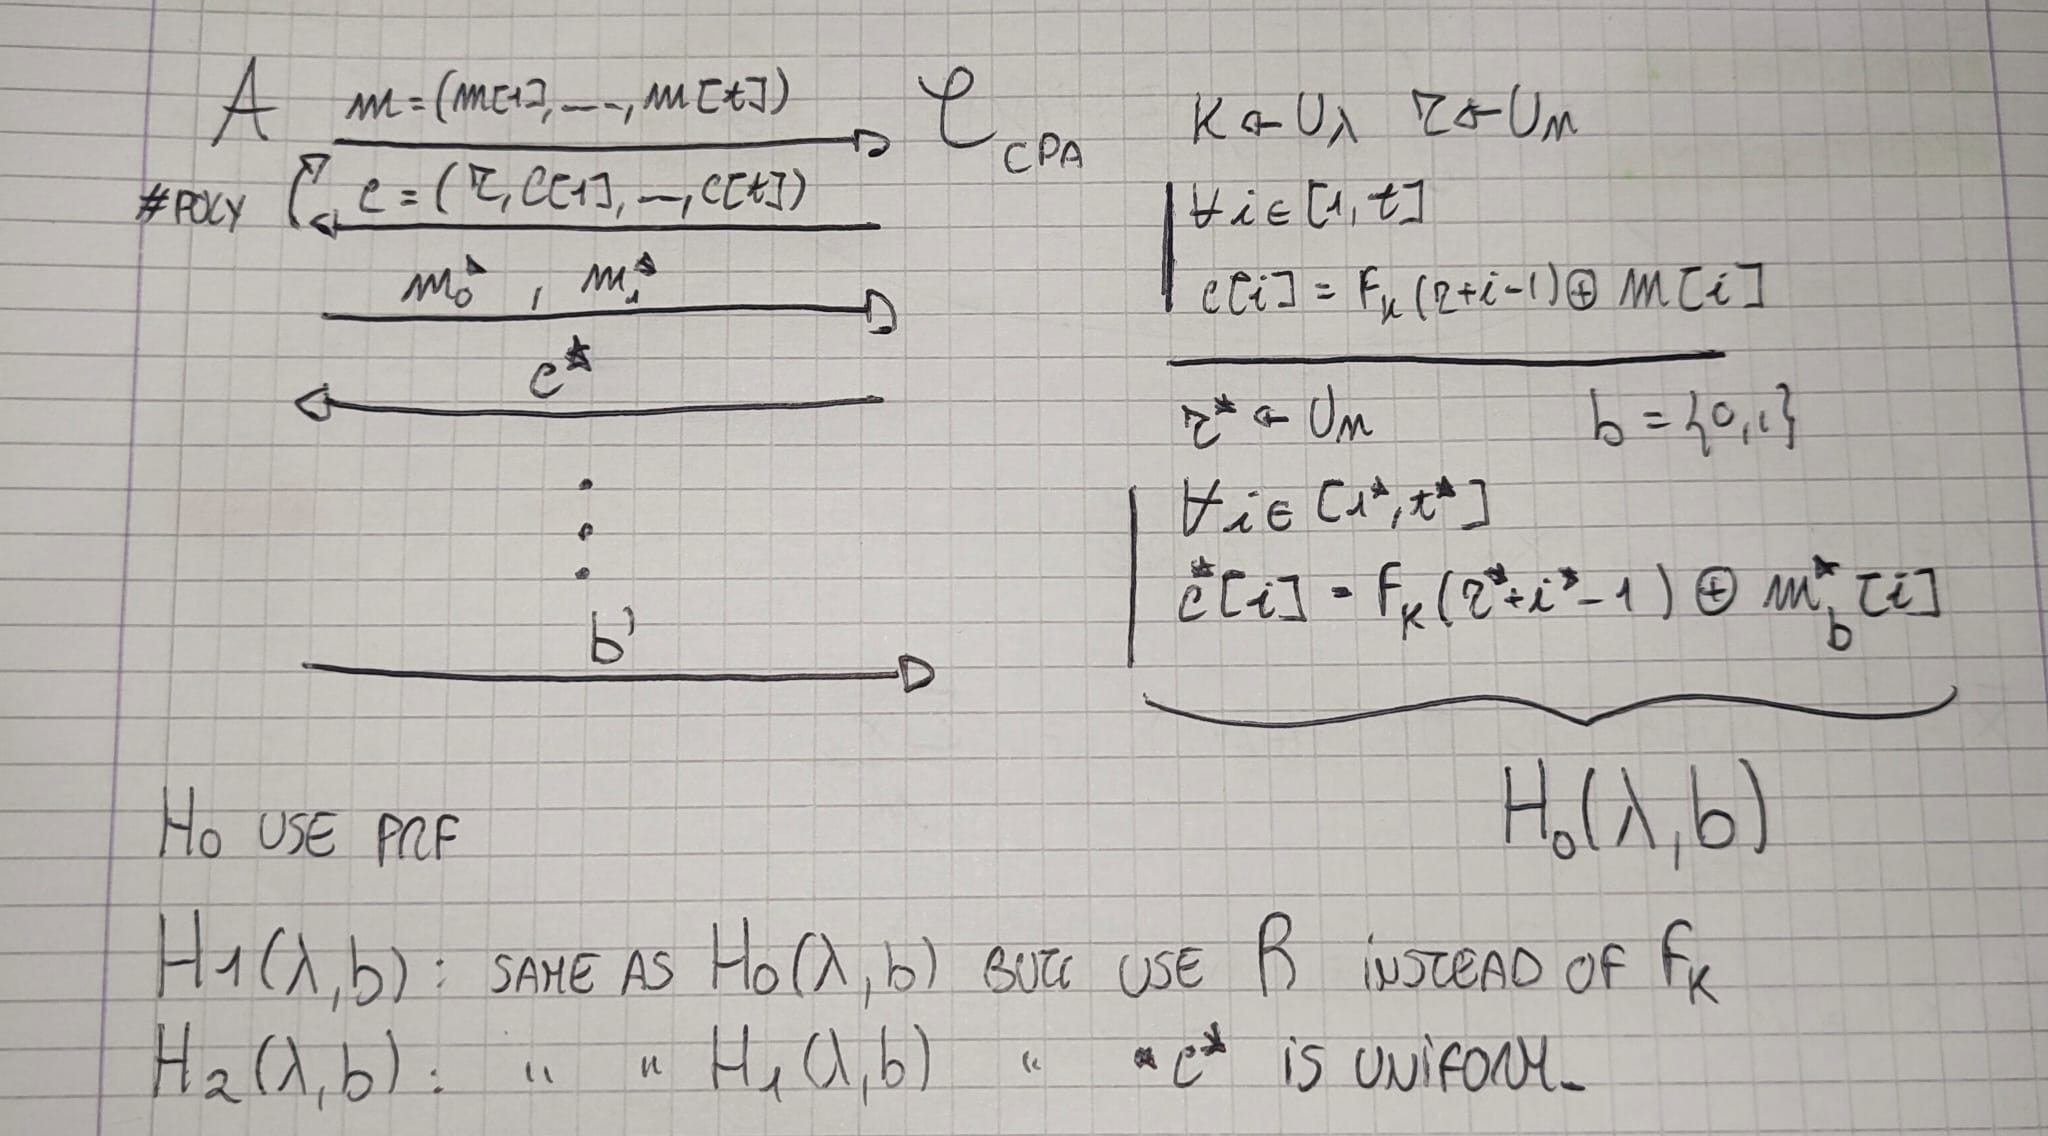 A m = (m[1], ---, m[t]) C CPA K ← Uλ r ← Un
#POLY c = (r, c[1], --, c[t]) ∀i ∈ [1, t]
m₀*, m₁* c[i] = Fk(r+i-1) ⊕ m[i]
c* r* ← Un b = {0,1}
∀i ∈ [1*, t*]
c*[i] = Fk(r*+i*-1) ⊕ m*b[i]
b'
H₀(λ,b)
H₀ USE PRF
H1(λ,b): SAME AS H₀(λ,b) BUT USE R INSTEAD OF Fk
H₂(λ,b): " " H₁(λ,b) " " c* IS UNIFORM_